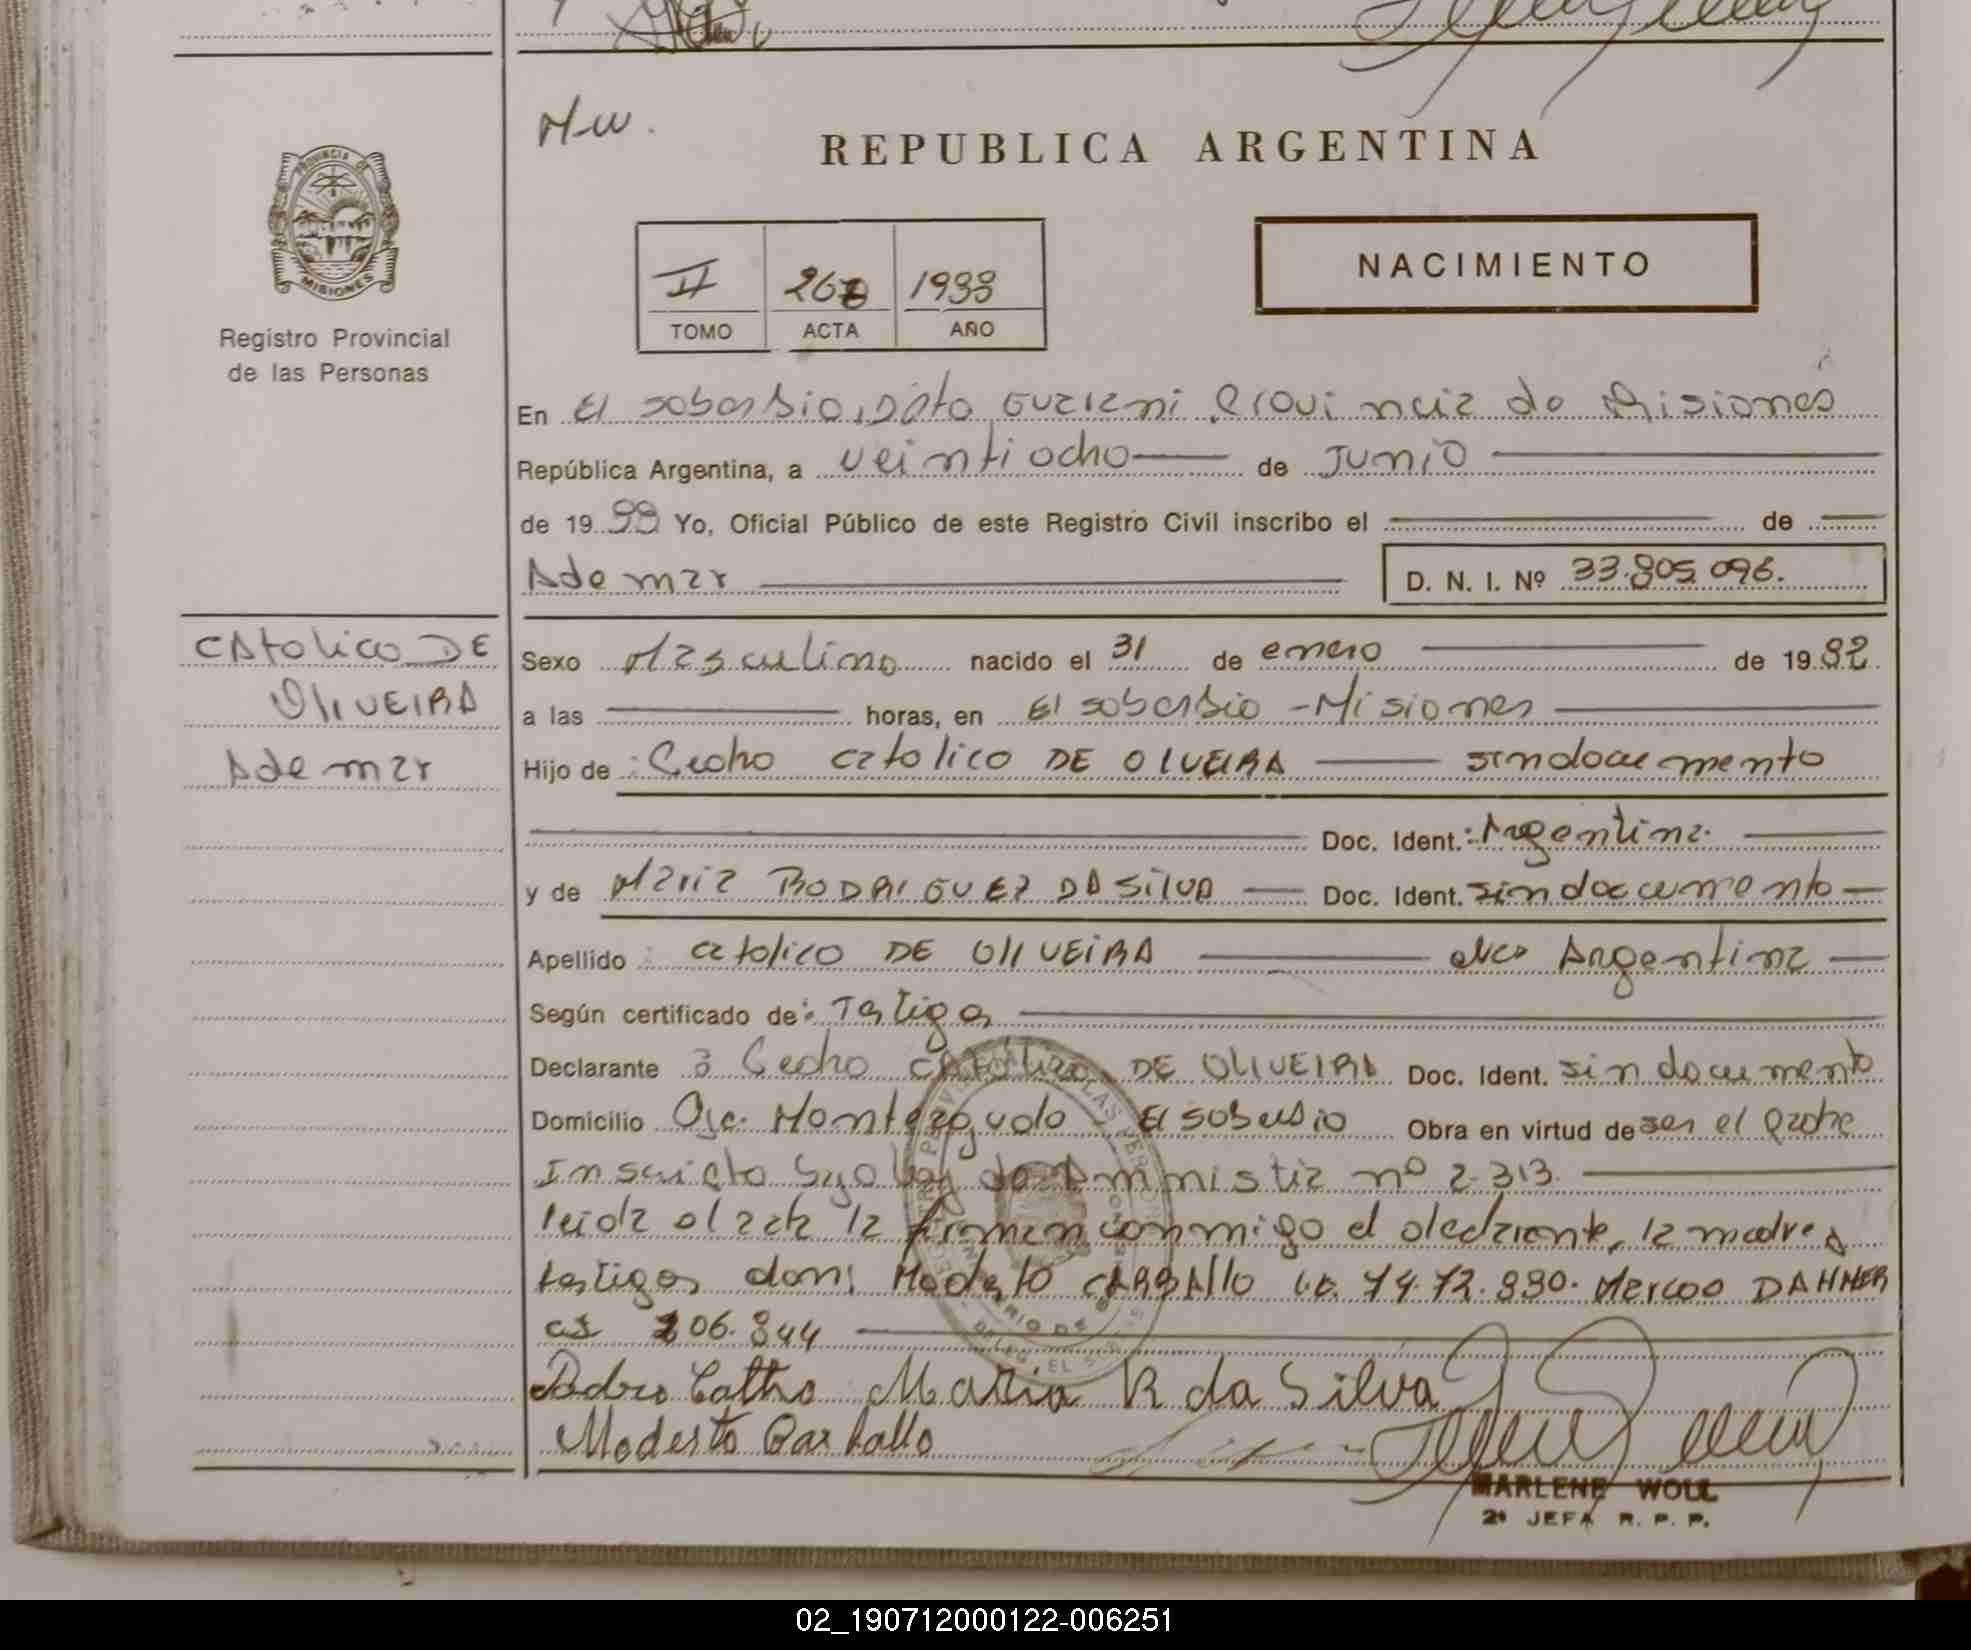 M-W.
REPUBLICA ARGENTINA
PROVINCIA DE
MISIONES
Registro Provincial
de las Personas
II 1988
TOMO ACTA AÑO
NACIMIENTO
En El soberbio, Dpto Guarani Provincia de Misiones
República Argentina, a veintiocho de Junio
de 1988 Yo, Oficial Público de este Registro Civil inscribo el de
Ademar D. N. I. Nº 33.805.096.
CAtolico DE
OliVEIRA
Ademar
Sexo Masculino nacido el 31 de enero de 1982
a las horas, en El soberbio - Misiones
Hijo de : Pedro Catolico DE OlIVEIRA sin documento
Doc. Ident.: Argentina.
y de Maria RODRIGUEZ DA SilVA Doc. Ident. sin documento
Apellido Catolico DE OliVEiRA Nac Argentina
Según certificado de: Testigos
Declarante Pedro CAtólico DE OLIVEIRA Doc. Ident. sin documento
Domicilio Pje. Monteagudo El soberbio Obra en virtud de ser el padre
Inscripto bajo ley de Amnistia nº 2.313.
leida el acta la firman conmigo el declarante, la madre y
testigos don: Modesto CARBAllo 74.72.880. Marcos DAHMER
844
Pedro Catho Maria R da Silva
Modesto Carballo
MARLENE WOLL
2ª JEFA R. P. P.
02_190712000122-006251